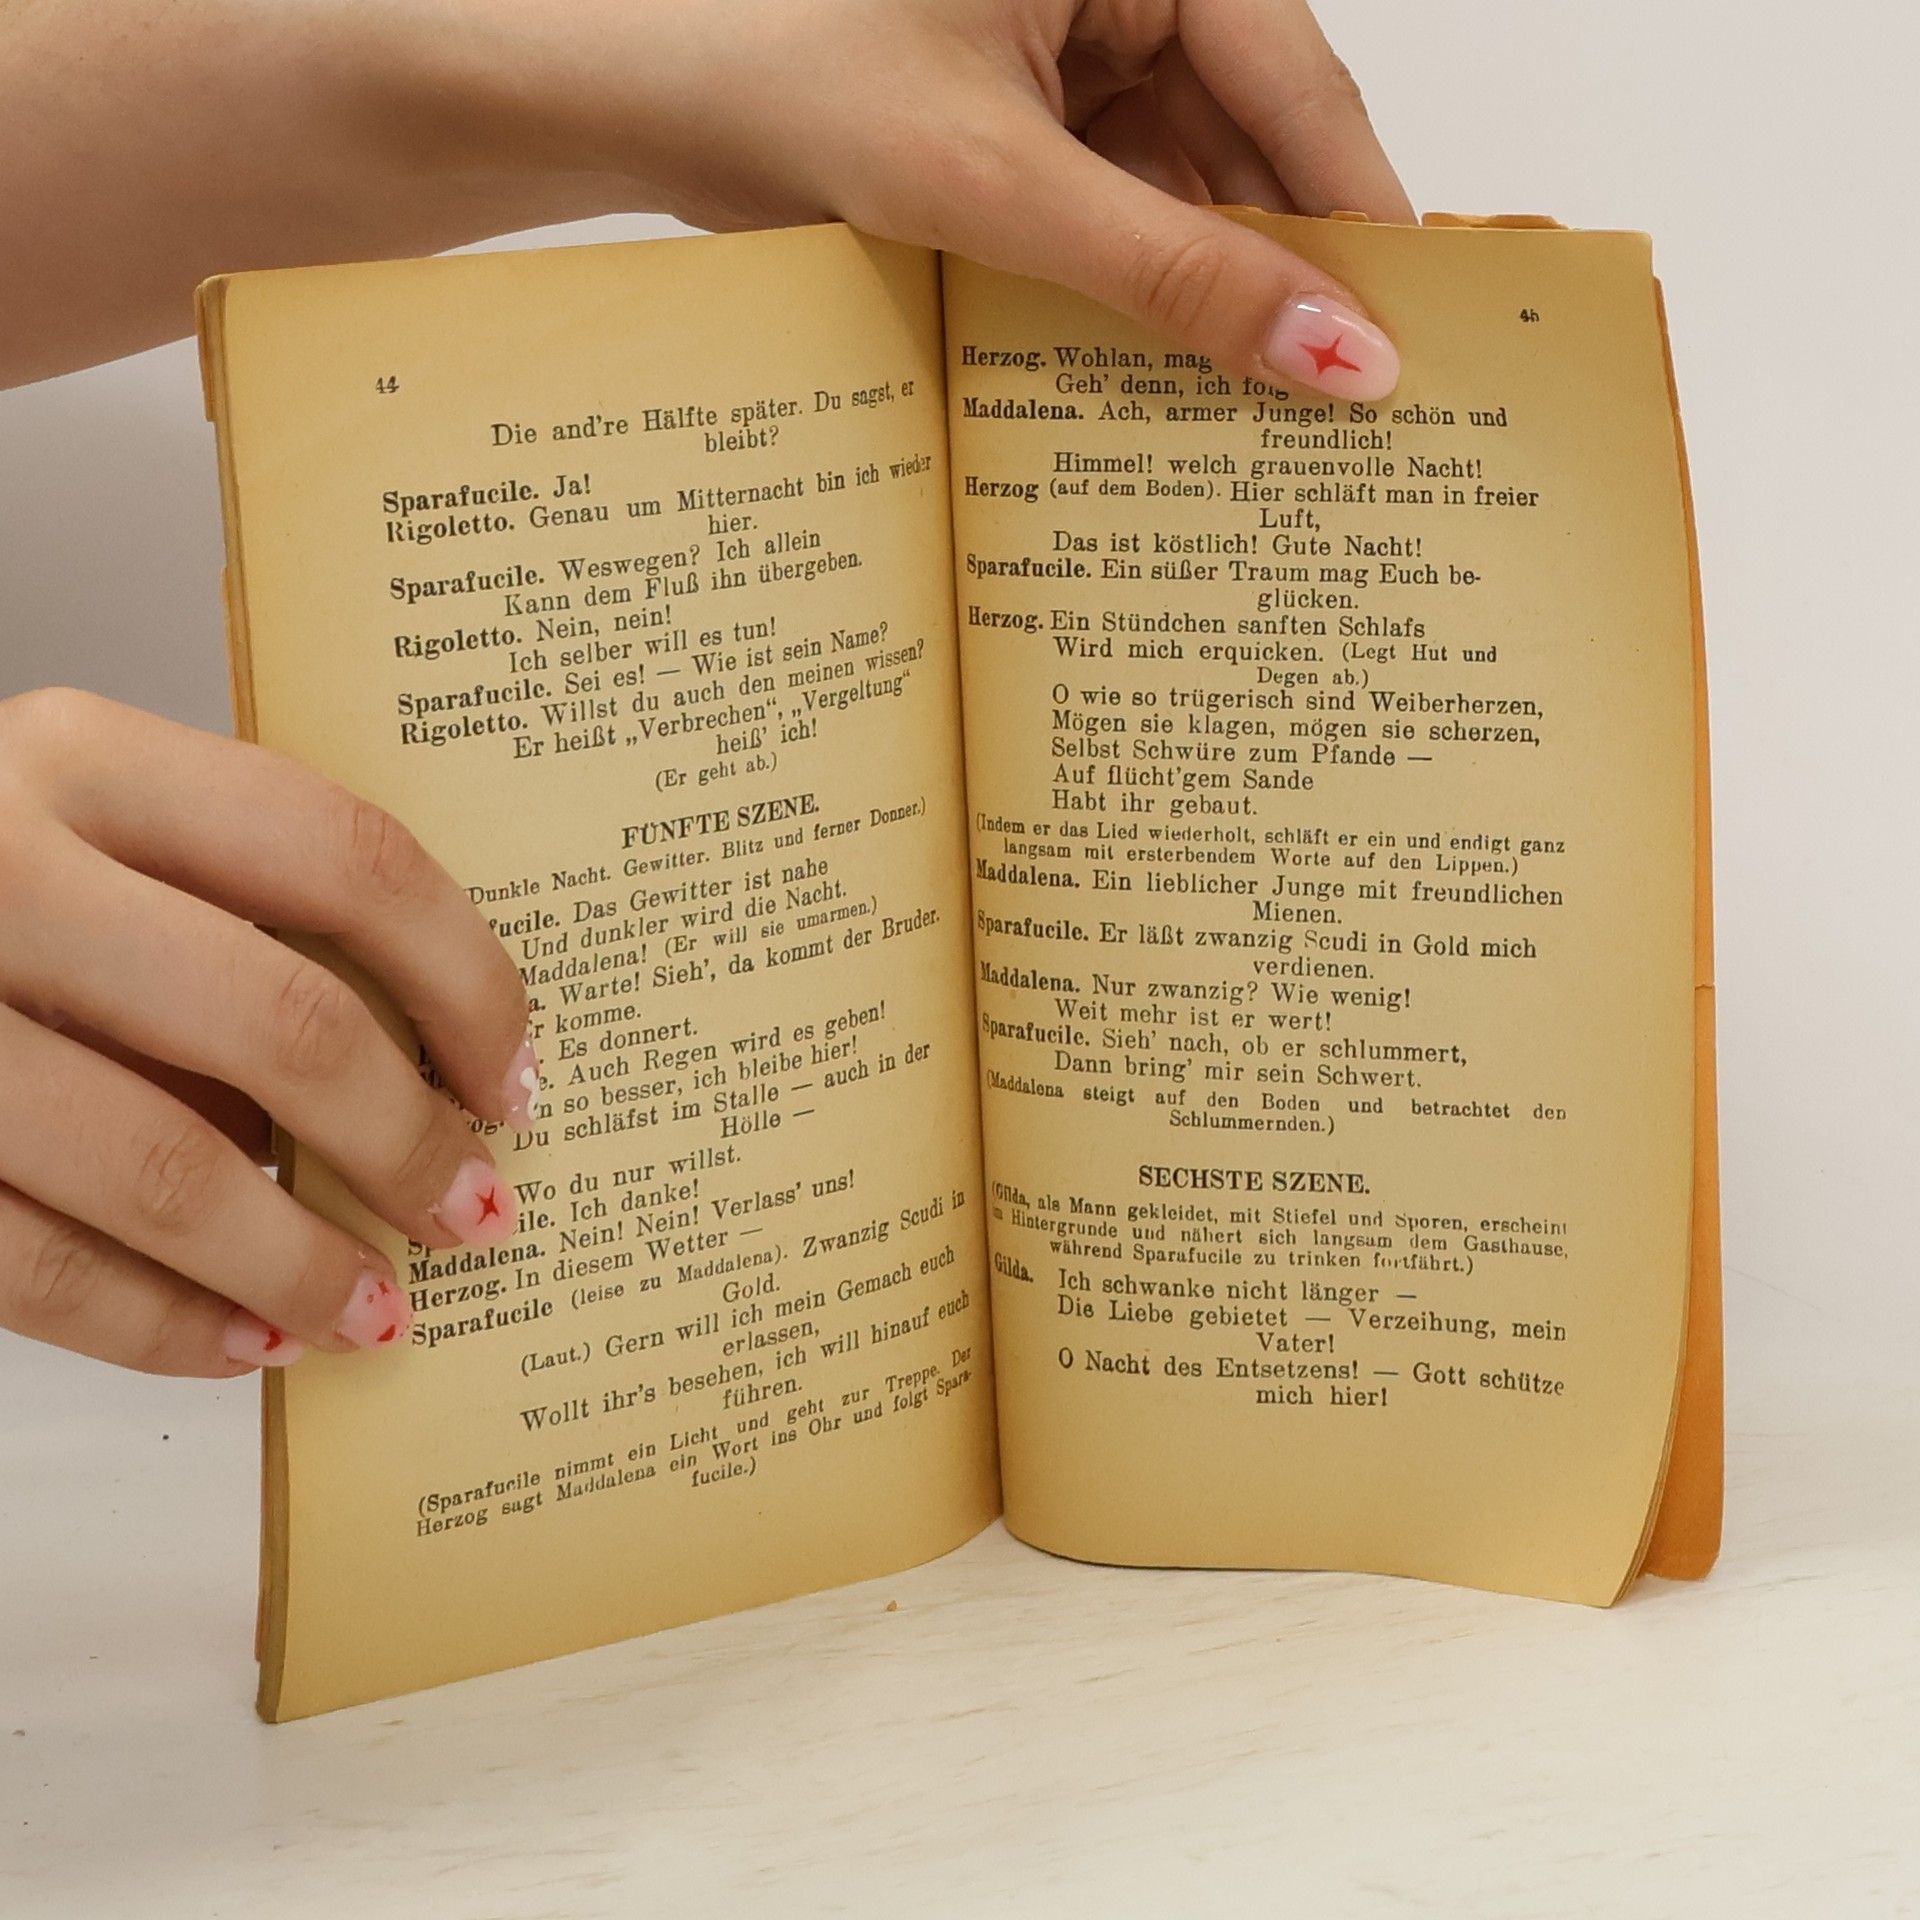 44
Die and're Hälfte später. Du sagst, er
bleibt?
Sparafucile. Ja!
Rigoletto. Genau um Mitternacht bin ich wieder
hier.
Sparafucile. Weswegen? Ich allein
Kann dem Fluß ihn übergeben.
Rigoletto. Nein, nein!
Ich selber will es tun!
Sparafucile. Sei es! — Wie ist sein Name?
Rigoletto. Willst du auch den meinen wissen?
Er heißt „Verbrechen“, „Vergeltung“
heiß' ich!
(Er geht ab.)
FÜNFTE SZENE.
(Dunkle Nacht. Gewitter. Blitz und ferner Donner.)
fucile. Das Gewitter ist nahe
Und dunkler wird die Nacht.
Maddalena! (Er will sie umarmen.)
a. Warte! Sieh', da kommt der Bruder.
r komme.
. Es donnert.
e. Auch Regen wird es geben!
n so besser, ich bleibe hier!
Du schläfst im Stalle — auch in der
Hölle —
Wo du nur willst.
ile. Ich danke!
Maddalena. Nein! Nein! Verlass' uns!
Herzog. In diesem Wetter —
Sparafucile (leise zu Maddalena). Zwanzig Scudi in
Gold.
(Laut.) Gern will ich mein Gemach euch
erlassen,
Wollt ihr's besehen, ich will hinauf euch
führen.
(Sparafucile nimmt ein Licht und geht zur Treppe. Der
Herzog sagt Maddalena ein Wort ins Ohr und folgt Spara-
fucile.)
45
Herzog. Wohlan, mag
Geh' denn, ich folg
Maddalena. Ach, armer Junge! So schön und
freundlich!
Himmel! welch grauenvolle Nacht!
Herzog (auf dem Boden). Hier schläft man in freier
Luft,
Das ist köstlich! Gute Nacht!
Sparafucile. Ein süßer Traum mag Euch be-
glücken.
Herzog. Ein Stündchen sanften Schlafs
Wird mich erquicken. (Legt Hut und
Degen ab.)
O wie so trügerisch sind Weiberherzen,
Mögen sie klagen, mögen sie scherzen,
Selbst Schwüre zum Pfande —
Auf flücht'gem Sande
Habt ihr gebaut.
(Indem er das Lied wiederholt, schläft er ein und endigt ganz
langsam mit ersterbendem Worte auf den Lippen.)
Maddalena. Ein lieblicher Junge mit freundlichen
Mienen.
Sparafucile. Er läßt zwanzig Scudi in Gold mich
verdienen.
Maddalena. Nur zwanzig? Wie wenig!
Weit mehr ist er wert!
Sparafucile. Sieh' nach, ob er schlummert,
Dann bring' mir sein Schwert.
(Maddalena steigt auf den Boden und betrachtet den
Schlummernden.)
SECHSTE SZENE.
(Gilda, als Mann gekleidet, mit Stiefel und Sporen, erscheint
im Hintergrunde und nähert sich langsam dem Gasthause,
während Sparafucile zu trinken fortfährt.)
Gilda. Ich schwanke nicht länger —
Die Liebe gebietet — Verzeihung, mein
Vater!
O Nacht des Entsetzens! — Gott schütze
mich hier!